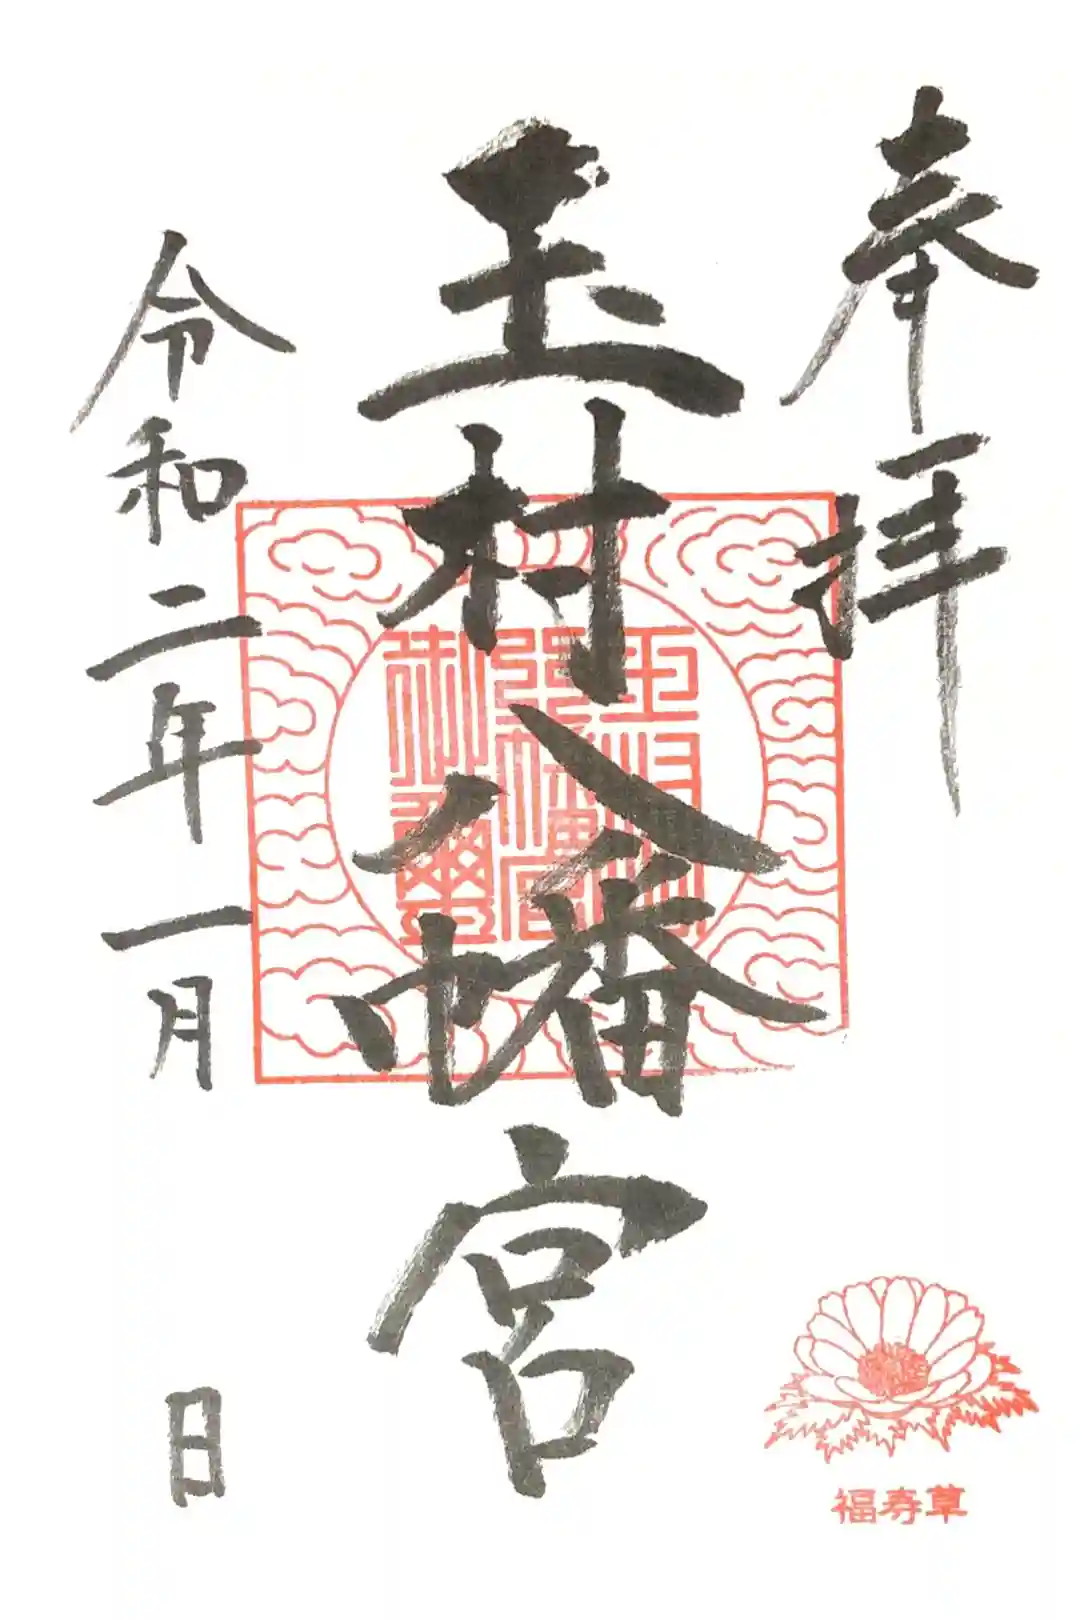 奉拝
玉村八幡宮
令和二年一月 日
福寿草